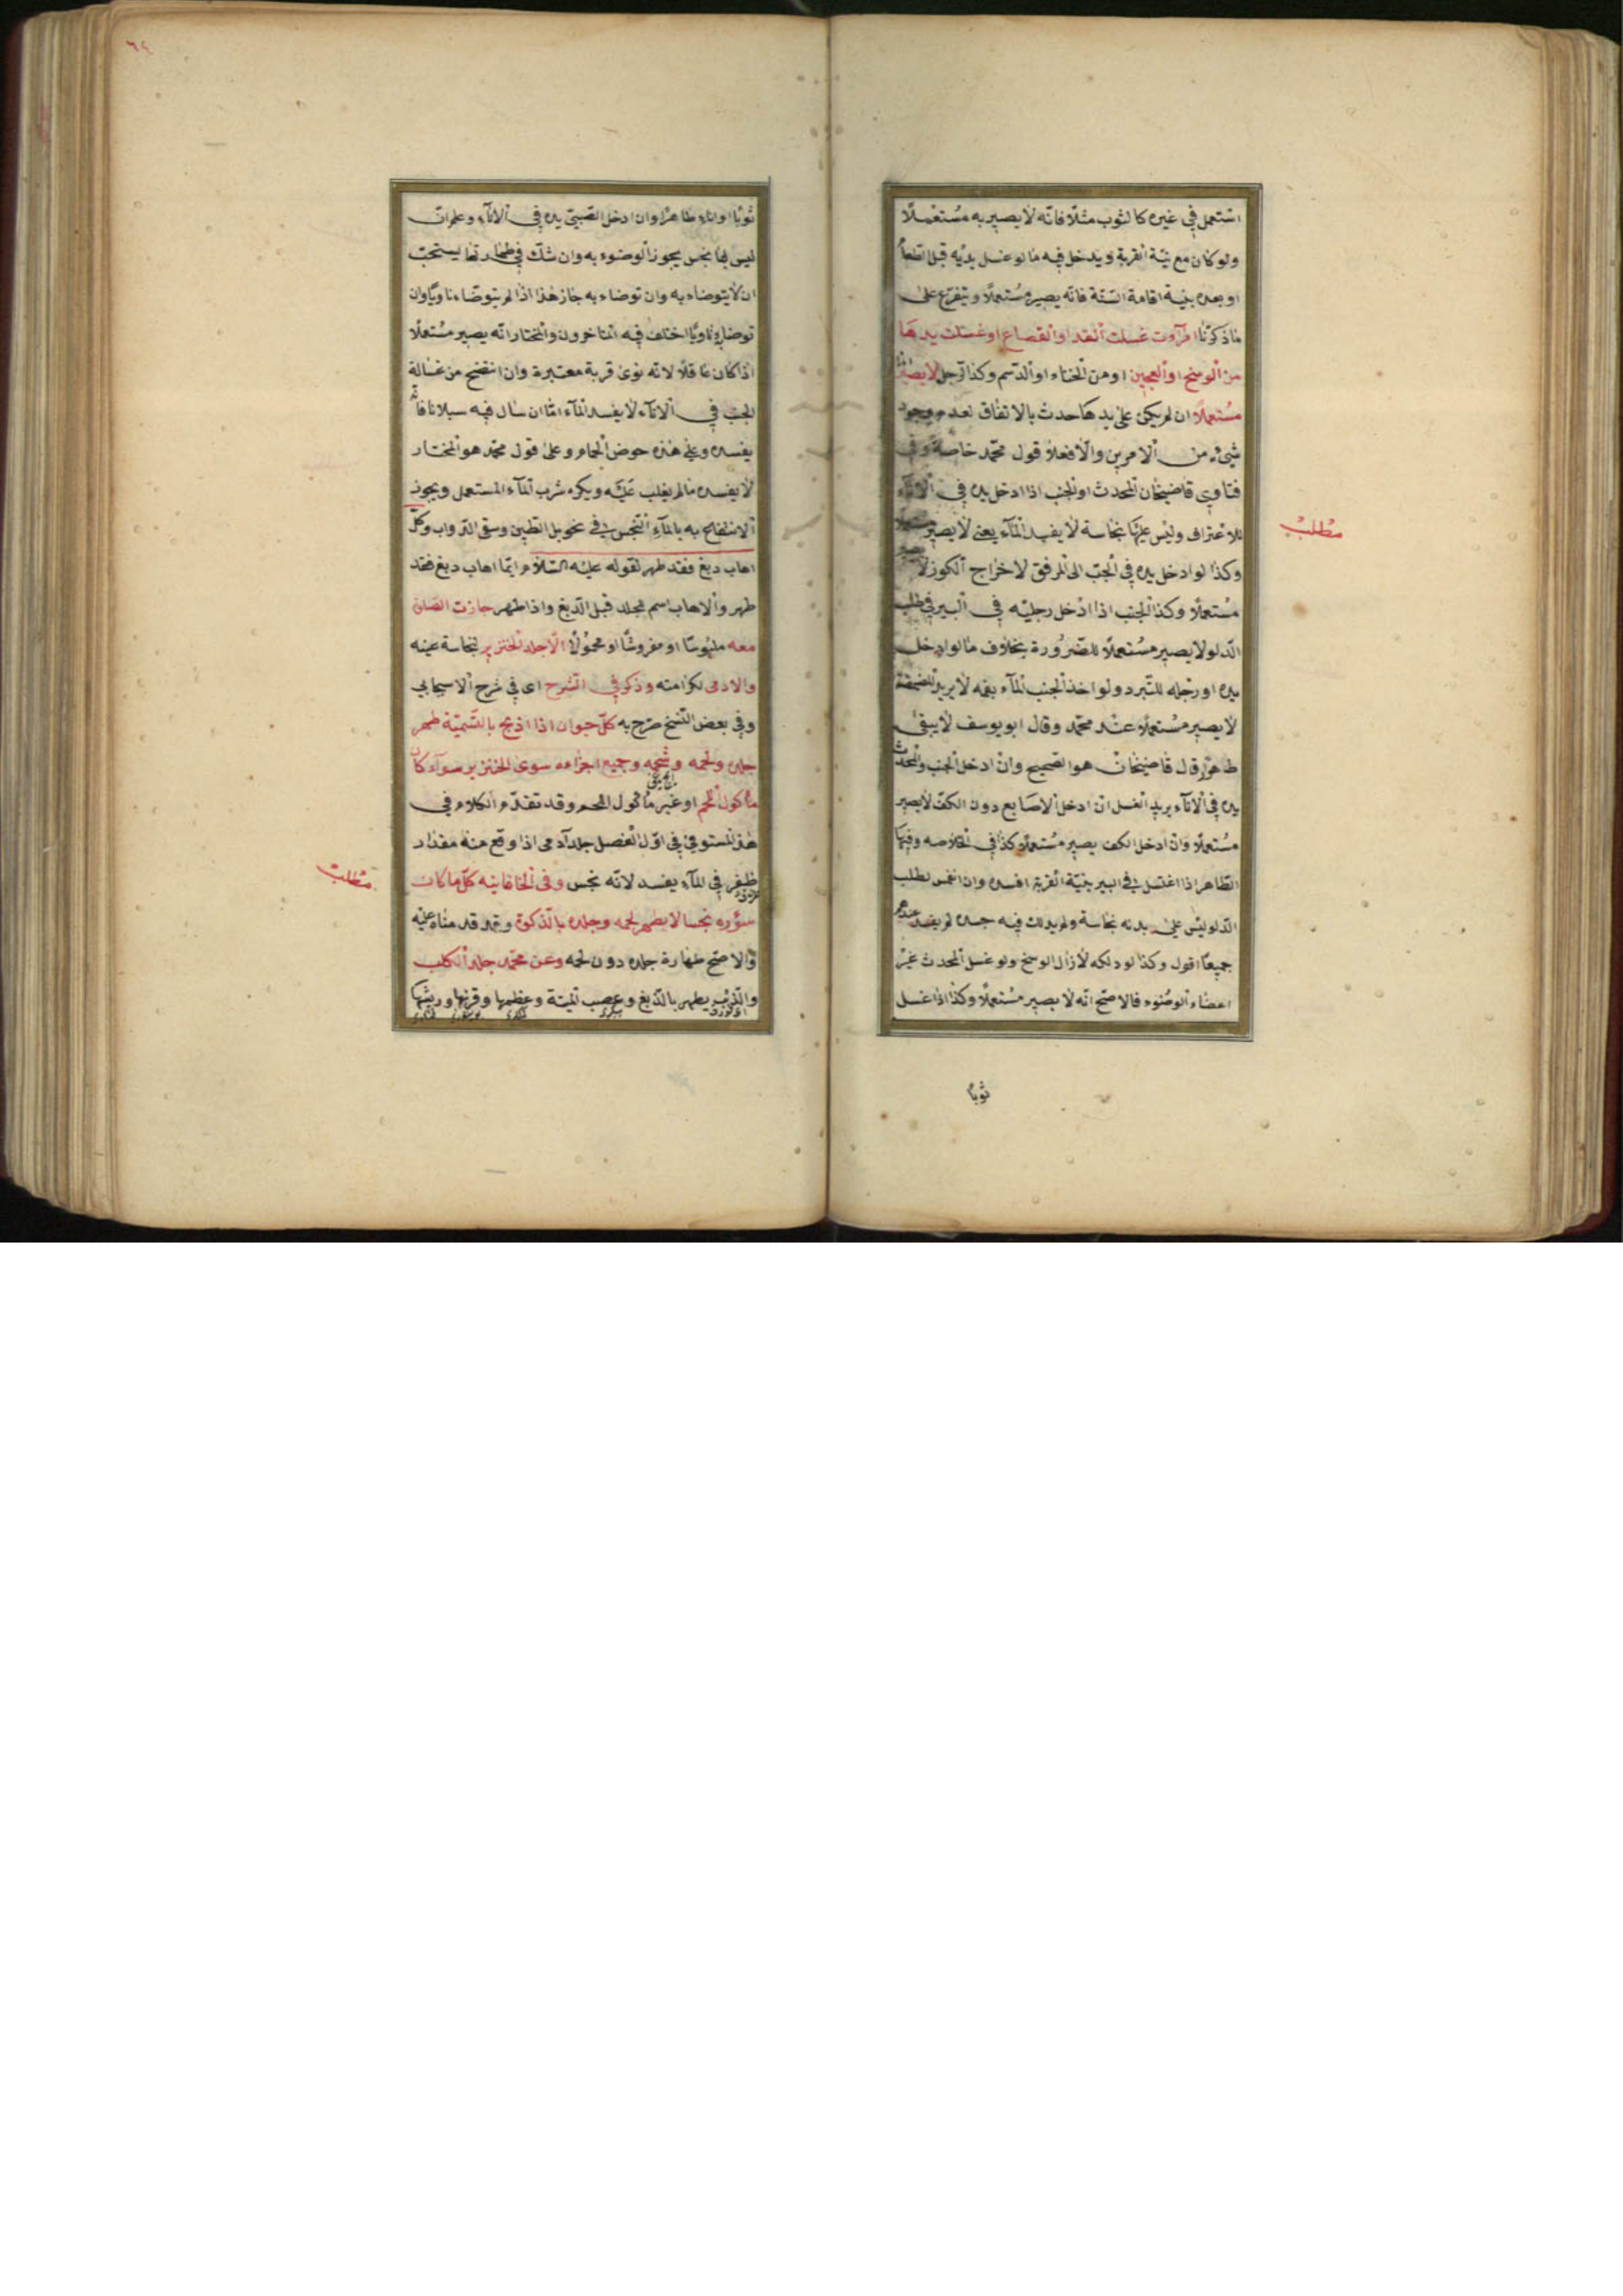 استعمل في غيره كالثوب مثلا فانه لا يصير به مستعملا
ولو كان مع نية القربة ويدخل فيه ما لو غسل يديه قبل الطعام
او بعده بنية اقامة السنة فانه يصير مستعملا ويتفرع على
ما ذكرنا امرأة غسلت القدر او القصاع او غسلت يدها
من الوسخ او العجين او من الحناء او الدسم وكذا الرجل لا يصير
مستعملا ان لم يكن على يدها حدث بالاتفاق لعدم وجود
شيء من الامرين والا فعلى قول محمد خاصة وفي
فتاوى قاضيخان المحدث او الجنب اذا ادخل يده في الاناء
للاغتراف وليس عليها نجاسة لا يفسد الماء يعني لا يصير مستعملا
وكذا لو ادخل يده في الجب الى المرفق لاخراج الكوز لا يصير
مستعملا وكذا الجنب اذا ادخل رجليه في البير في طلب
الدلو لا يصير مستعملا للضرورة بخلاف ما لو ادخل
يده او رجله للتبرد ولو اخذ الجنب الماء بفمه لا يريد المضمضة
لا يصير مستعملا عند محمد وقال ابو يوسف لا يبقى
طاهرا قال قاضيخان هو الصحيح وان ادخل الجنب والمحدث
يده في الاناء يريد الغسل ان ادخل الاصابع دون الكف لا يصير
مستعملا وان ادخل الكف يصير مستعملا كذا في الخلاصه وفيها
الطاهر اذا اغتسل في البير بنية القربة افسده وان انغمس لطلب
الدلو ليس على بدنه نجاسة ولم يدلك فيه جسده لم يفسد عندهم
جميعا اقول وكذا لو دلكه لازال الوسخ ولو غسل المحدث غير
اعضاء الوضوء فالاصح انه لا يصير مستعملا وكذا اذا غسل
ثوبا
مطلب
٦٤
ثوبا او اناء طاهرا وان ادخل الصبي يده في الاناء وعلم ان
ليس بها نجس يجوز الوضوء به وان شك في طهارتها يستحب
ان لا يتوضاء به وان توضاء به جاز هذا اذا لم يتوضاء ناويا وان
توضا به ناويا اختلف فيه المتاخرون والمختار انه يصير مستعملا
اذا كان عاقلا لانه نوى قربة معتبرة وان انتضح من غسالة
الجنب في الاناء لا يفسد الماء اما ان سال فيه سيلانا فانه
يفسده وعلى هذه حوض الحمام وعلى قول محمد هو المختار
لا يفسده ما لم يغلب عليه ويكره شرب الماء المستعمل ويجوز
الانتفاع به بالماء النجس في نحو بل الطين وسقي الدواب وكل
اهاب دبغ فقد طهر لقوله عليه السلام ايما اهاب دبغ فقد
طهر والاهاب اسم لجلد قبل الدبغ واذا طهر جازت الصلوة
معه ملبوسا او مفروشا او محمولا الا جلد الخنزير لنجاسة عينه
والادمى لكرامته وذكر في الشرح اى في شرح الاسبيجابي
وفي بعض النسخ صرح به كل حيوان اذا اذبح بالتسمية طهر
جلده ولحمه وشحمه وجميع اجزاءه سوى الخنزير سوآء كان
مأكول اللحم او غير مأكول اللحم وقد تقدم الكلام في
هذا المستوفى في اول الفصل جلد آدمى اذا وقع منه مقدار
ظفر في الماء يفسد لانه نجس وفى الخاقانيه كل ما كان
سؤره نجسا لا يطهر لحمه وجلده بالذكوة وقد قدمناه عليه
والاصح طهارة جلده دون لحمه وعن محمد جلد الكلب
والذئب يطهر بالدبغ وعصب الميتة وعظمها وقرنها وريشها
مطلب